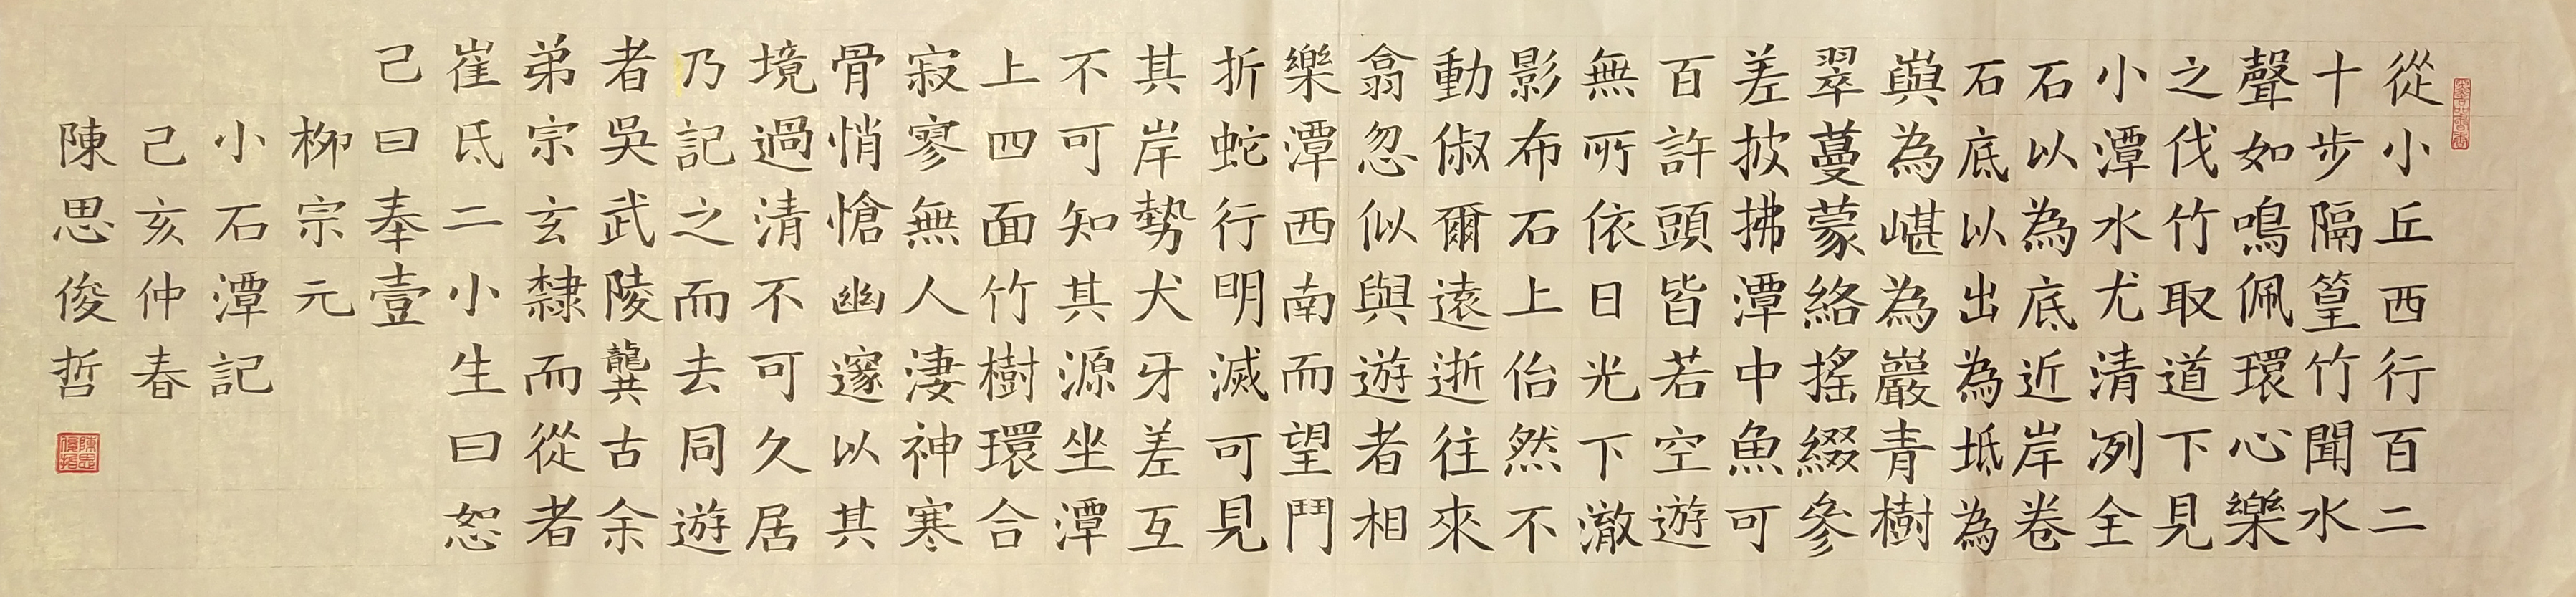 從小丘西行百二
十步隔篁竹聞水
聲如鳴佩環心樂
之伐竹取道下見
小潭水尤清冽全
石以為底近岸卷
石底以出為坻為
嶼為嵁為巖青樹
翠蔓蒙絡搖綴參
差披拂潭中魚可
百許頭皆若空遊
無所依日光下澈
影布石上佁然不
動俶爾遠逝往來
翕忽似與遊者相
樂潭西南而望鬥
折蛇行明滅可見
其岸勢犬牙差互
不可知其源坐潭
上四面竹樹環合
寂寥無人淒神寒
骨悄愴幽邃以其
境過清不可久居
乃記之而去同遊
者吳武陵龔古余
弟宗玄隸而從者
崔氏二小生曰恕
己曰奉壹
柳宗元
小石潭記
己亥仲春
陳思俊哲
陳思俊哲